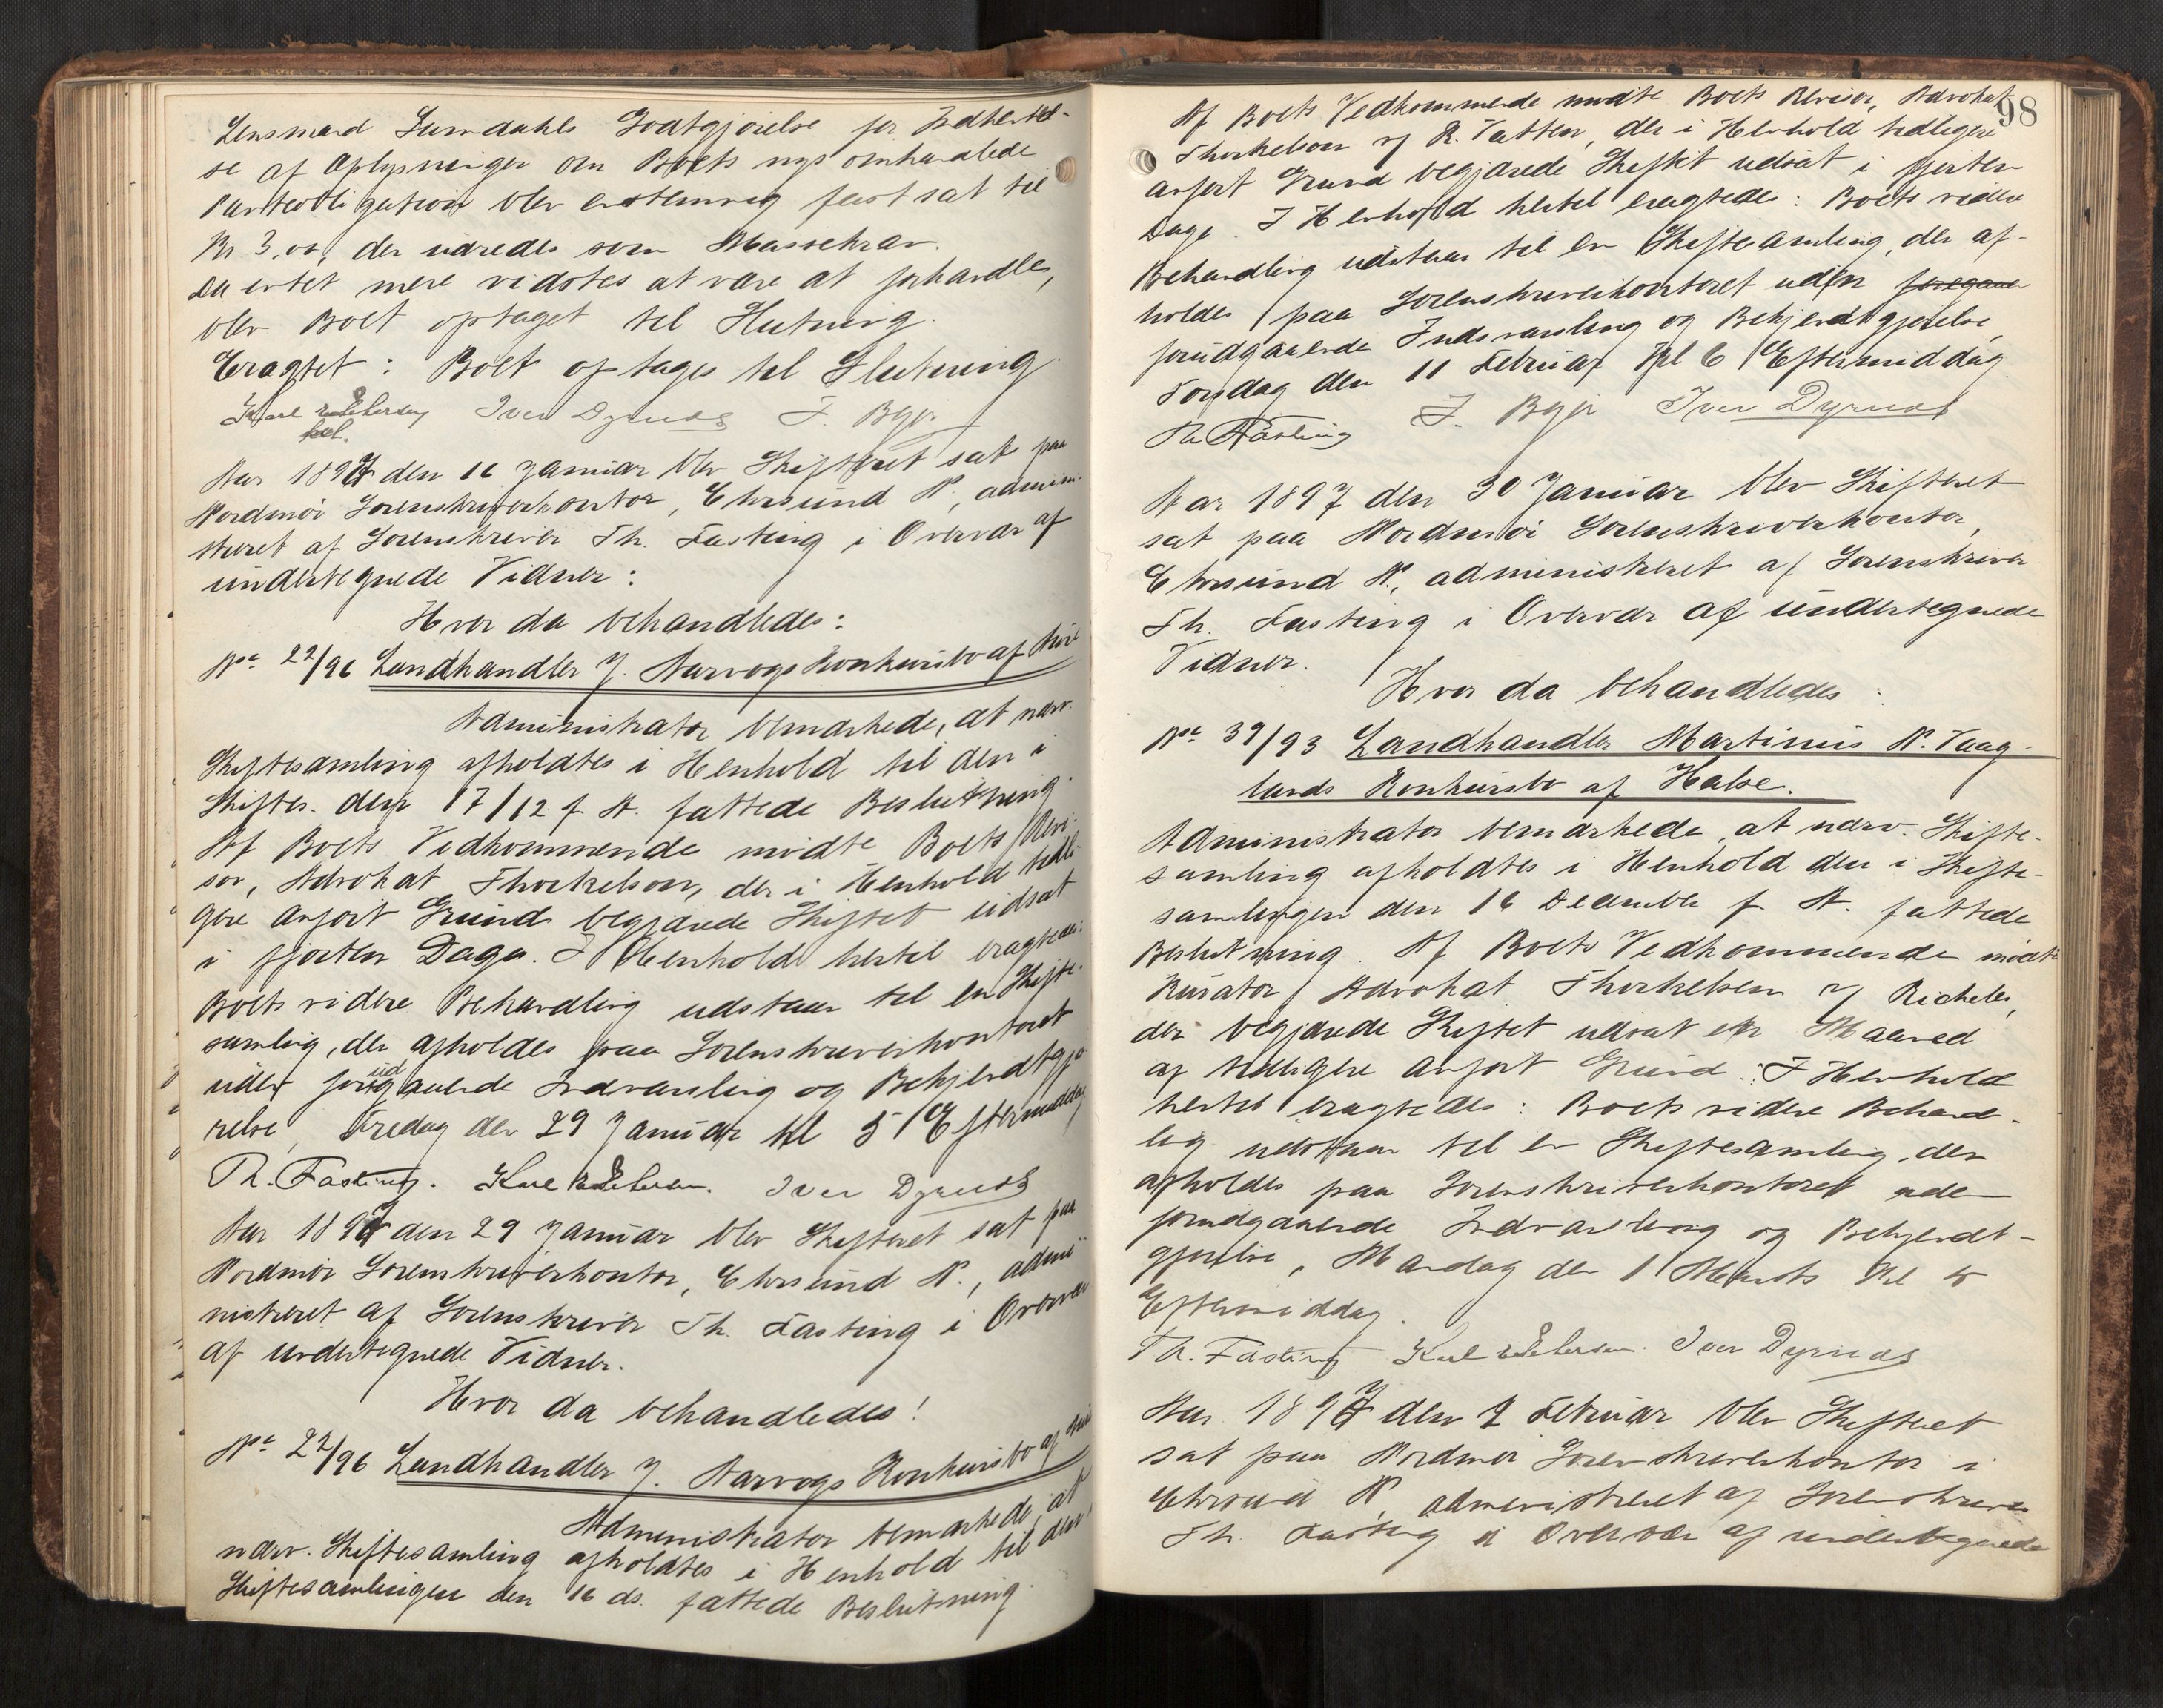 Lensmand Sumdahls Godtgjørelse for Indhentel-
se af Oplysninger om Boets nys omhandlede
Panteobligation blev enstemmig fastsat til
Kr 3,00, der udredes som Massekrav.
Da intet mere vidstes at være at forhandle,
blev Boet optaget til Slutning.
Eragtet: Boet optages til Slutning.
Iver Dyrnes J. Bgjr
Aar 1897 den 16 Januar blev Skifteret sat paa
Nordmør Sorenskriverkontor, Chrsund N., admini-
streret af Sorenskriver Th. Fasting i Overvær af
undertegnede Vidner:
Hvor da behandledes:
No 22/96 Landhandler J. Aarvogs Konkursbo af
Administrator bemærkede, at nærv.
Skiftesamling afholdtes i Henhold til den i
Skiftes. den 17/12 f. A. fattede Beslutning.
Af Boets Vedkommende mødte Boets Revi-
sor, Advokat Thorkelson, der i Henhold tidli-
gere anført Grund begjærede Skiftet udsat
i fjorten Dage. I Henhold hertil eragtedes:
Boets videre Behandling udstaar til en Skifte-
samling, der afholdes paa Sorenskriverkontoret
uden forudgaaende Indvarsling og Bekjendtgjø-
relse, Fredag den 29 Januar Kl 5 Eftermiddag
Th. Fasting. Karl Petersen. Iver Dyrnes
Aar 1897 den 29 Januar blev Skifteret sat paa
Nordmør Sorenskriverkontor, Chrsund N., admi-
nistreret af Sorenskriver Th. Fasting i Overvær
af undertegnede Vidner.
Hvor da behandledes!
No 22/96 Landhandler J. Aarvogs Konkursbo af
Administrator bemærkede, at
nærv. Skiftesamling afholdtes i Henhold til den i
Skiftesamlingen den 16 ds. fattede Beslutning.
98
Af Boets Vedkommende mødte Boets Revisor, Advokat
Thorkelson v/ R. Vatten, der i Henhold tidligere
anført Grund begjærede Skiftet udsat i fjorten
Dage. I Henhold hertil eragtedes: Boets videre
Behandling udstaar til en Skiftesamling, der af-
holdes paa Sorenskriverkontoret uden foregaae
forudgaaende Indvarsling og Bekjendtgjørelse,
Torsdag den 11 Februar Kl 6 Eftermiddag
Th Fasting J. Bgjr Iver Dyrnes
Aar 1897 den 30 Januar blev Skifteret
sat paa Nordmør Sorenskriverkontor,
Chrsund N., administreret af Sorenskriver
Th. Fasting i Overvær af undertegnede
Vidner.
Hvor da behandledes:
No 39/93 Landhandler Martinus N. Vaag-
lands Konkursbo af Halse.
Administrator bemærkede, at nærv. Skifte-
samling afholdtes i Henhold den i Skifte-
samlingen den 16 December f A. fattede
Beslutning. Af Boets Vedkommende mødte
Kurator, Advokat Thorkelsen v/ Richeler,
der begjærede Skiftet udsat en Maaned
af tidligere anført Grund. I Henhold
hertil eragtedes: Boets videre Behand-
lig udstaar til en Skiftesamling, der
afholdes paa Sorenskriverkontoret uden
forudgaaende Indvarsling og Bekjendt-
gjørelse, Mandag den 1 Marts Kl 5
Eftermiddag.
Th. Fasting Karl Petersen. Iver Dyrnes
Aar 1897 den 2 Februar blev Skifteret
sat paa Nordmør Sorenskriverkontor i
Chrsund N, administreret af Sorenskriver
Th. Fasting i Overvær af undertegnede